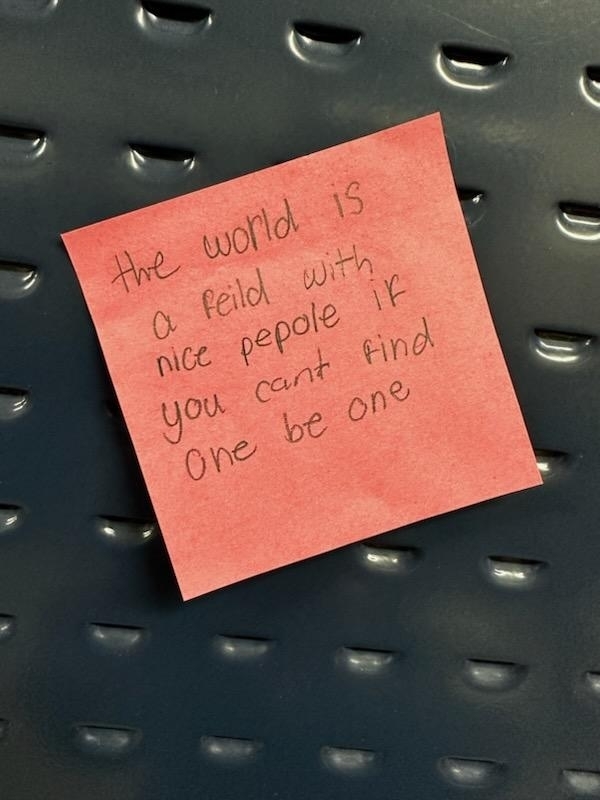 the world is
a feild with
nice pepole if
you cant find
one be one